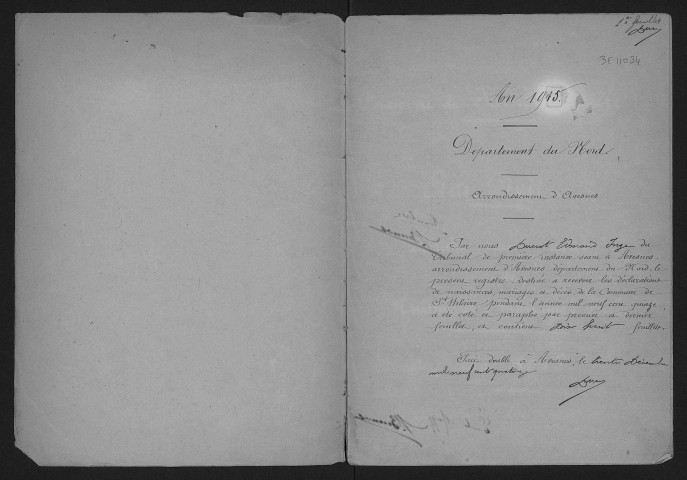 1er feuillet
3E 11034
An 1915.
Département du Nord.
Arrondissement d'Avesnes
Par nous Edmond Juge du
tribunal de première instance séant à Avesnes
arrondissement d'Avesnes département du Nord, le
présent registre destiné à recevoir les déclarations
de naissances, mariages et décès de la Commune de
St Hilaire pendant l'année mil neuf cent quinze
a été coté et paraphé par premier et dernier
feuillet, et contient huit feuillets.
Fait double à Avesnes, le trente Décembre
mil neuf cent quatorze